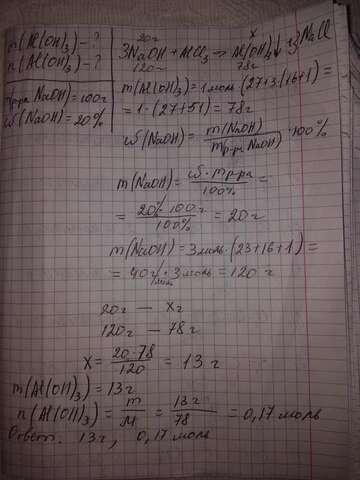 m(Al(OH)₃) - ?
n(Al(OH)₃) - ?
mр-ра NaOH = 100г
ω(NaOH) = 20%
20г x
3NaOH + AlCl₃ → Al(OH)₃↓ + 3NaCl
120г 78г
m(Al(OH)₃) = 1моль · (27+3·(16+1) =
= 1·(27+51) = 78г
ω(NaOH) = m(NaOH) / mр-ра(NaOH) · 100%
m(NaOH) = ω·mр-ра / 100% =
= 20%·100г / 100% = 20г
m(NaOH) = 3моль·(23+16+1) =
= 40г/моль · 3моль = 120г
20г — Xг
120г — 78г
X = 20·78 / 120 = 13г
m(Al(OH)₃) = 13г
n(Al(OH)₃) = m / M = 13г / 78 = 0,17моль
Ответ: 13г, 0,17моль